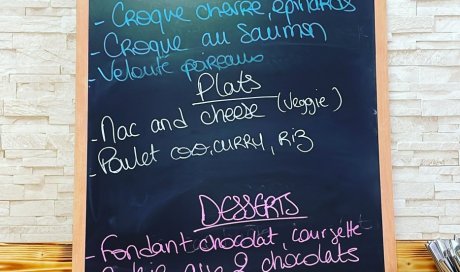 - Croque chèvre, épinards
- Croque au Saumon
- Velouté poireaux
Plats
- Mac and cheese (veggie)
- Poulet coco, CURRY, Riz
DESSERTS
- Fondant chocolat, courgette
aux 2 chocolats